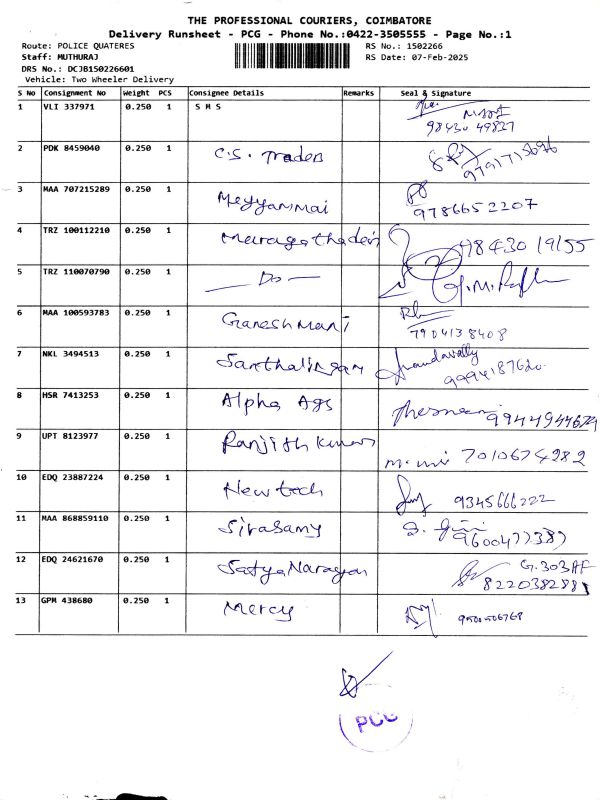 THE PROFESSIONAL COURIERS, COIMBATORE
Delivery Runsheet - PCG - Phone No.:0422-3505555 - Page No.:1
Route: POLICE QUATERES RS No.: 1502266
Staff: MUTHURAJ RS Date: 07-Feb-2025
DRS No.: DCJB150226601
Vehicle: Two Wheeler Delivery
S No Consignment No Weight PCS Consignee Details Remarks Seal & Signature
1 VLI 337971 0.250 1 S M S
98430 49837
2 PDK 8459040 0.250 1 C.S. Traders
9791715696
3 MAA 707215289 0.250 1 Meyyammai
9786652207
4 TRZ 100112210 0.250 1 Maragathadevi 98430 19155
5 TRZ 110070790 0.250 1 — Do —
6 MAA 100593783 0.250 1 Ganesh Mani
7904138408
7 NKL 3494513 0.250 1 Santhalingam
8 HSR 7413253 0.250 1 Alpha Ags
9944944674
9 UPT 8123977 0.250 1 Ranjith kumar
7010674282
10 EDQ 23887224 0.250 1 New tech 9345666222
11 MAA 868859110 0.250 1 Sivasamy
9600477387
12 EDQ 24621670 0.250 1 Satya Narayan G.303AF
8220382881
13 GPM 438680 0.250 1 Mercy
PCG